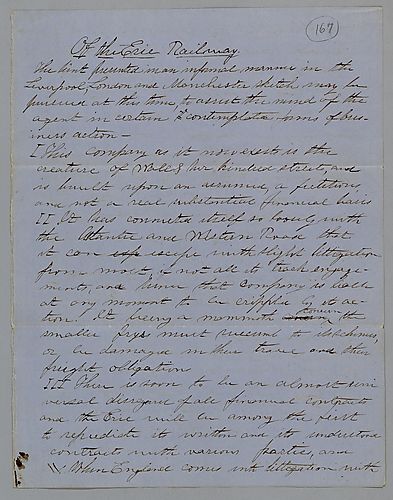 167
Of the Erie Railway
The hint presented in an informal manner in the
Liverpool, London and Manchester sketch may be
pursued at this time, to assist the mind of the
agent in certain & contemplated forms of bus-
iness action -
I This company as it now exists is the
creature of Wall St & kindred streets, and
is built upon an assumed, a fictitious,
and not a real substantial financial basis
II It has connected itself so loosely with
the Atlantic and Western Road, that
it can escape with slight litigation
from most, if not all its track engage-
ments, and hence that company is liable
at any moment to be crippled by its ac-
tion. It being a mammoth concern the
smaller must succumb to its
or be damaged in their trade and their
freight obligations
III There is soon to be an almost uni
versal disregard of all financial contracts
and the Erie will be among the first
to repudiate its written and its understood
contracts with various parties, and
When England comes into litigation with